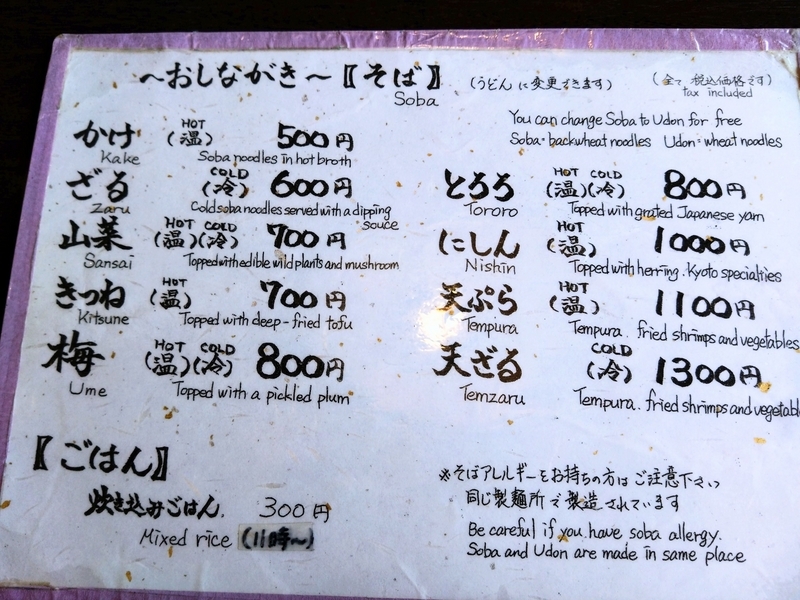 ～おしながき～【そば】 (うどんに変更できます) (全て税込価格です)
Soba tax included
You can change Soba to Udon for free
Soba・backwheat noodles Udon:wheat noodles
HOT
かけ (温) 500円
Kake Soba noodles in hot broth
COLD
ざる (冷) 600円
Zaru Cold soba noodles served with a dipping souce
HOT COLD
山菜 (温)(冷) 700円
Sansai Topped with edible wild plants and mushroom
HOT
きつね (温) 700円
Kitsune Topped with deep-fried tofu
HOT COLD
梅 (温)(冷) 800円
Ume Topped with a pickled plum
HOT COLD
とろろ (温)(冷) 800円
Tororo Topped with grated Japanese yam
HOT
にしん (温) 1000円
Nishin Topped with herring. Kyoto specialties
HOT
天ぷら (温) 1100円
Tempura Tempura. fried shrimps and vegetables
COLD
天ざる (冷) 1300円
Temzaru Tempura. fried shrimps and vegetabl
【ごはん】
炊き込みごはん. 300円
Mixed rice (11時～)
※そばアレルギーをお持ちの方はご注意下さい
同じ製麺所で製造されています
Be careful if you have soba allergy.
Soba and Udon are made in same place